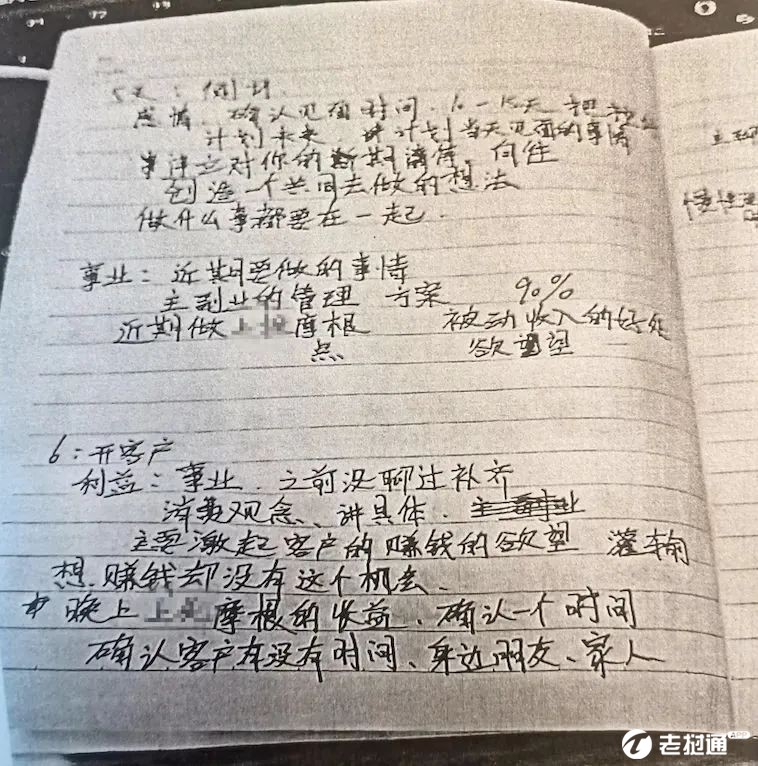 5天：
感情、确认见面时间、10-15天
计划未来 计划当天见面的事情
对你的 期 向往
创造一个共同去做的想法
做什么事都要在一起.
事业：近期要做的事情
主副业的管理 方案 90%
近期做 摩根 被动收入的好处
点 欲望
6：开客户
利益：事业、之前没聊过补齐
消费观念、讲具体.
主要激起客户的赚钱的欲望 灌输
想赚钱却没有这个机会.
晚上 摩根的收益、确认一个时间
确认客户有没有时间、身边朋友、家人
老挝通
APP